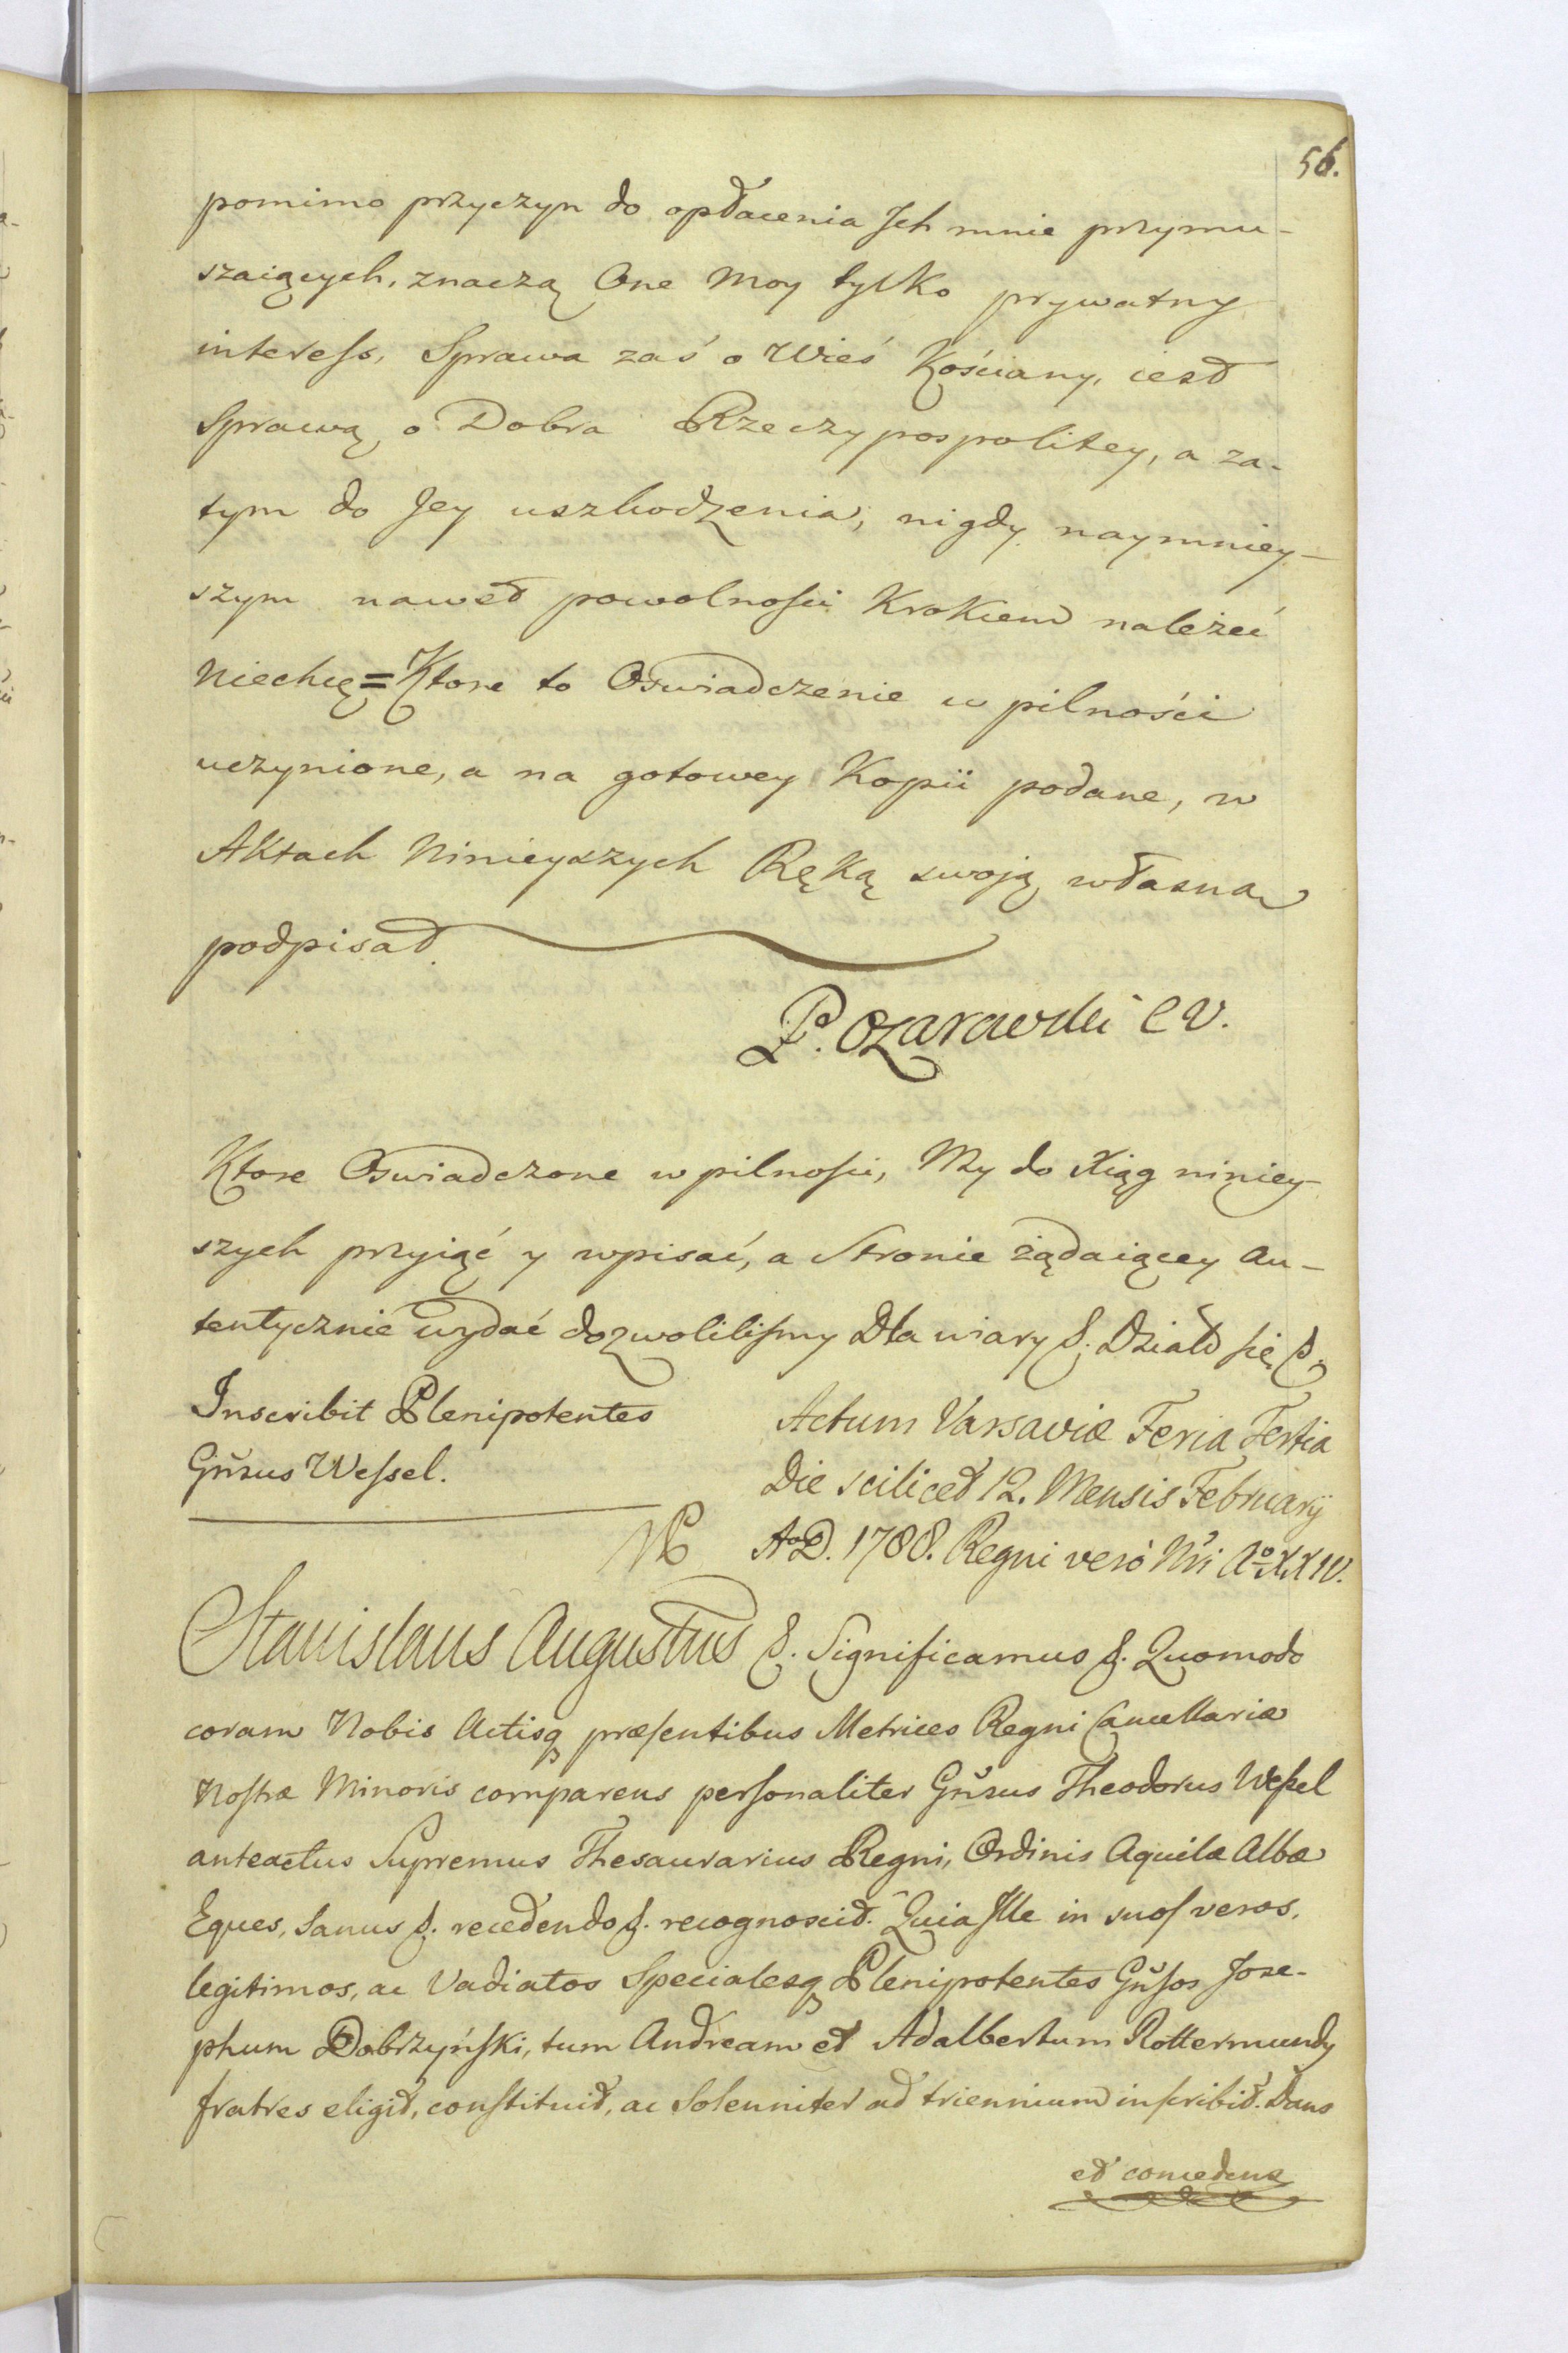 56.
pomimo przyczyn do opłacenia Jch mnie przymu-
szaiących, znaczą One moy tylko prywatny
interess, Sprawa zaś o Wieś Kościany, iest
Sprawą o Dobra Rzeczypospolitey, a za-
tym do Jey uszkodzenia, nigdy naymniey-
szym nawet powolności Krokiem należeć
niechcę = Ktore to Oswiadczenie w pilności
uczynione, a na gotowey Kopii podane, w
Aktach Ninieyszych Ręką swoją własną
podpisał.
P. Ożarowski CV.
Ktore Oswiadczone w pilności, My do Xiąg niniey-
szych przyiąć y wpisać, a Stronie żądaiącey au-
tentycznie wydać dozwolilismy Dla wiary &. Działo się &.
Inscribit Plenipotentes
Gñsus Wessel.
Actum Varsaviæ Feria Tertia
Die scilicet 12. Mensis Februarÿ
AoD. 1788. Regni verò Nri Ao XXIV.
Stanislaus Augustus &. Significamus &. Quomodo
coram Nobis Actisq præsentibus Metrices Regni Cancellariæ
Nostræ Minoris comparens personaliter Gñsus Theodorus Wessel
anteactus Supremus Thesaurarius Regni, Ordinis Aquilæ Albæ
Eques, sanus &. recedendo &. recognoscit. Quia Ille in suos veros,
legitimos, ac Vadiatos Specialesq Plenipotentes Gñsos Jose-
phum Dobrzyński, tum Andream et Adalbertum Rottermundy
fratres eligit, constituit, ac Solenniter ad triennium inscribit. Dans
et concedens